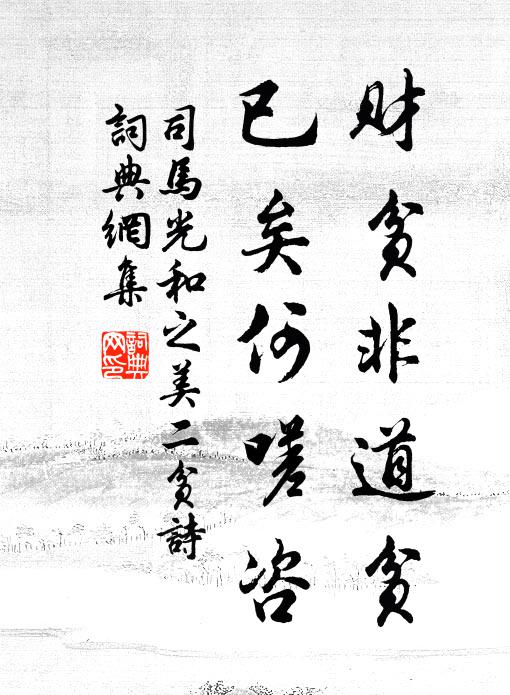 財貧非道貧
已矣何嗟咨
司馬光和之美二貧詩
詞典網集
詞典
網印